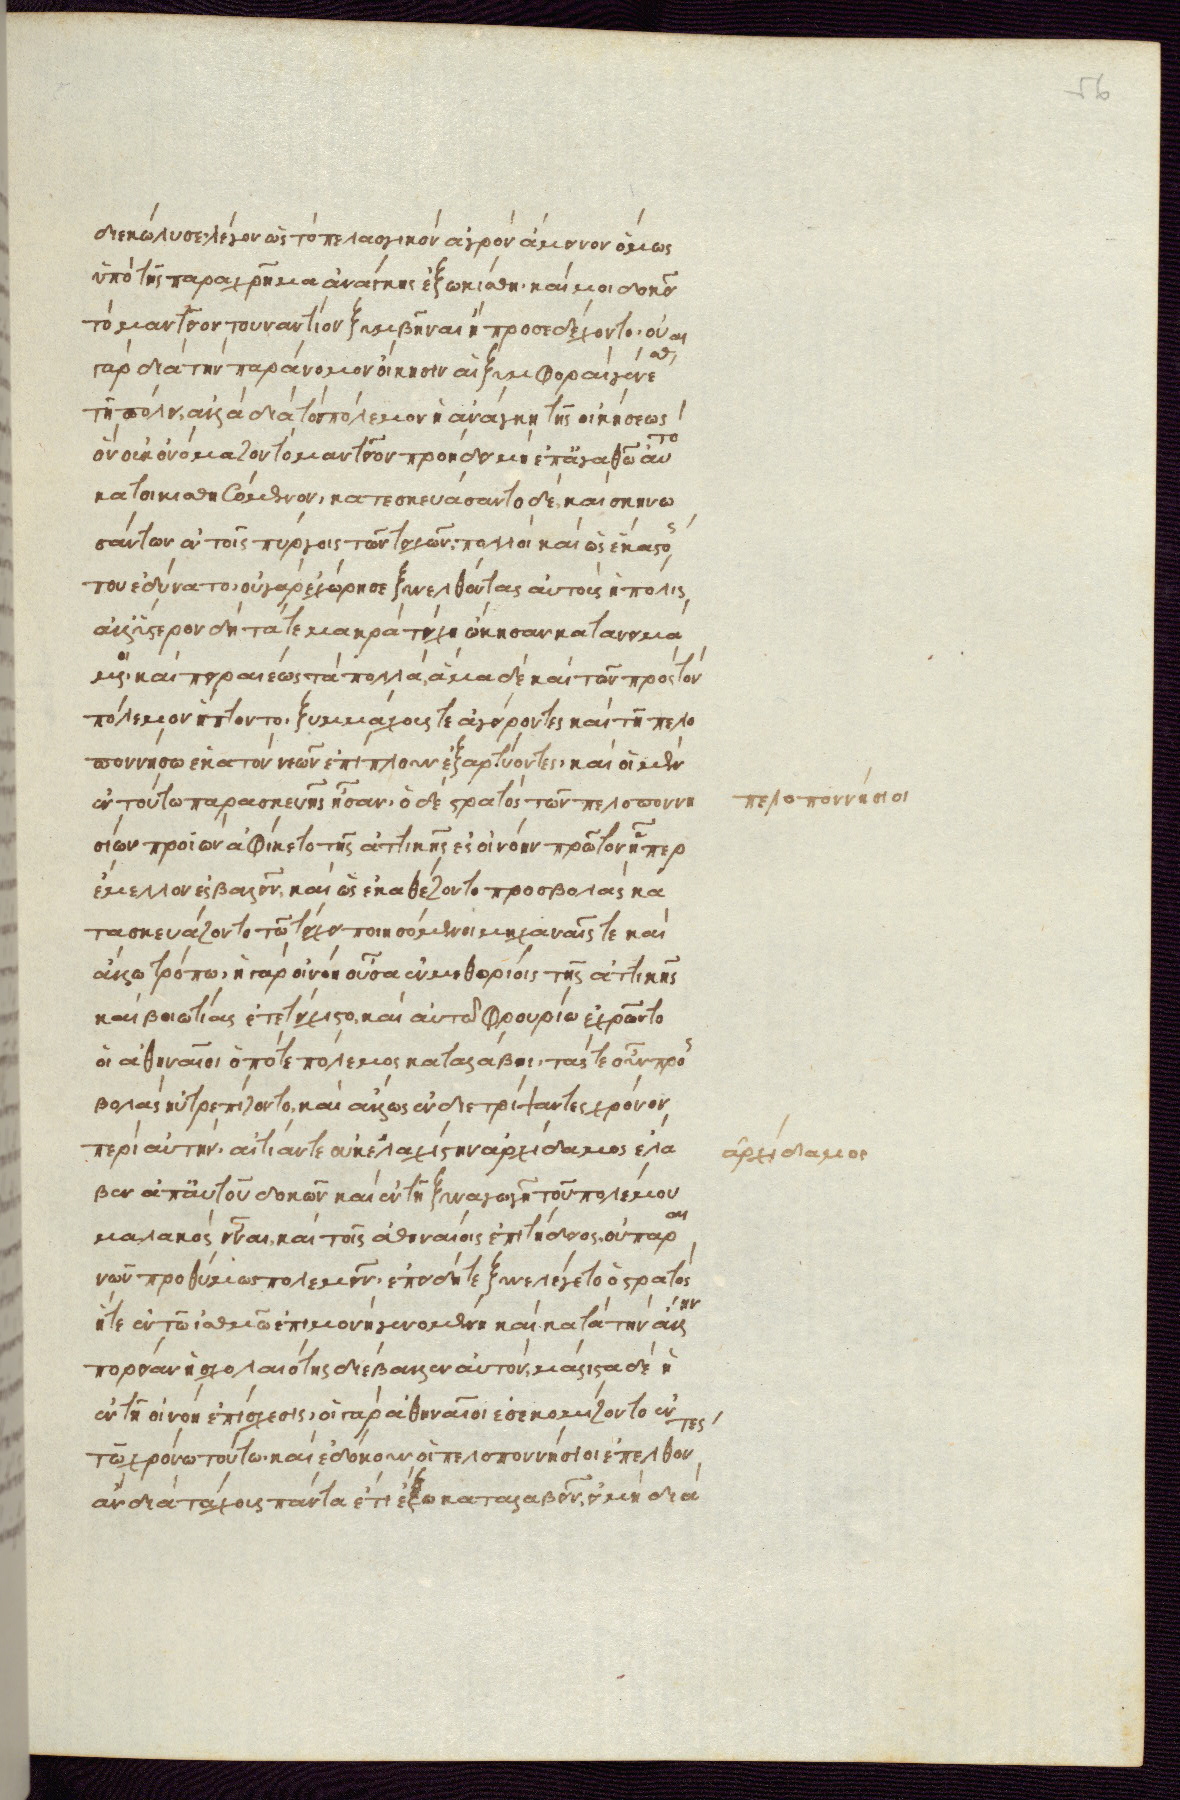 διεκώλυσε· λέγον ὡς τὸ πελασγικὸν ἀγρὸν ἄμεινον ὅμως
ὑπὸ τῆς παραχρῆμα ἀνάγκης ἐξωκίσθη· καί μοι δοκεῖ
τὸ μαντεῖον τουναντίον ξυμβῆναι ἢ προσεδέχοντο· οὐ
γὰρ διὰ τὴν παράνομον οἴκησιν αἱ ξυμφοραὶ γενέσθαι
τῆ πόλει, ἀλλὰ διὰ τὸν πόλεμον ἡ ἀνάγκη τῆς οἰκήσεως
ὃν οὐκ ὀνόμαζον τὸ μαντεῖον προήδει μὴ ἐπἀγαθῶ αὐτὸ
κατοικισθησόμενον, κατεσκευάσαντο δὲ, καὶ σκηνω
σάντων ἐν τοῖς πύργοις τῶν τειχῶν· πολλοὶ καὶ ὡς ἕκαστός
που ἐδύνατο· οὐ γὰρ ἐχώρησε ξυνελθόντας αὐτοὺς ἡ πόλις,
ἀλλ' ὕστερον δὴ τά τε μακρὰ τείχη ὤκησαν κατανειμά
μενοι· καὶ πειραιέως τὰ πολλὰ, ἅμα δὲ καὶ τῶν πρὸς τὸν
πόλεμον ἥπτοντο· ξυμμάχους τε ἀγείροντες καὶ τῆ πελο
ποννήσω ἑκατὸν νεῶν ἐπίπλουν ἐξαρτύοντες· καὶ οἱ μὲν
ἐν τούτω παρασκευῆς ἦσαν· ὁ δὲ στρατὸς τῶν πελοποννη
σίων προϊὼν ἀφίκετο τῆς ἀττικῆς ἐς οἰνόην πρῶτον ἧπερ
ἔμελλον ἐσβαλεῖν, καὶ ὡς ἐκαθέζοντο προσβολὰς κα
τασκευάζοντο τῶ τείχει ποιησόμενοι μηχαναῖς τε καὶ
ἄλλω τρόπω· ἡ γὰρ οἰνόη οὖσα ἐν μεθορίοις τῆς ἀττικῆς
καὶ βοιωτίας ἐτετείχιστο, καὶ αὐτῶ φρουρίω ἐχρῶντο
οἱ ἀθηναῖοι ὁπότε πόλεμος καταλάβοι· τάς τε οὖν προσ
βολὰς ηὐτρεπίζοντο, καὶ ἄλλως ἐνδιετρίψαντες χρόνον
περὶ αὐτὴν· αἰτίαν τε οὐκ ἐλαχίστην ἀρχίδαμος ἔλα
βεν ἀπ' αὐτοῦ δοκῶν καὶ ἐν τῆ ξυναγωγῆ τοῦ πολέμου
μαλακὸς εἶναι, καὶ τοῖς ἀθηναίοις ἐπιτήδειος, οὐ παραι
νῶν προθύμως πολεμεῖν· ἐπειδή τε ξυνελέγετο ὁ στρατὸς
ἥ τε ἐν τῶ ἰσθμῶ ἐπιμονὴ γενομένη καὶ κατὰ τὴν ἄλλην
πορείαν ἡ σχολαιότης διέβαλλεν αὐτὸν, μάλιστα δὲ ἡ
ἐν τῆ οἰνόη ἐπίσχεσις· οἱ γὰρ ἀθηναῖοι ἐσεκομίζοντο ἐν
τῶ χρόνω τούτω· καὶ ἐδόκουν οἱ πελοποννήσιοι ἐπελθόντες
ἂν διὰ τάχους πάντα ἔτι ἔξω καταλαβεῖν, εἰ μὴ διὰ
πελοποννήσιοι
ἀρχίδαμος
56